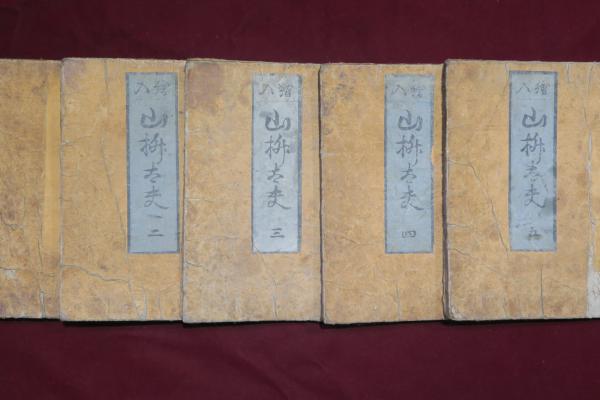 繪入
山桝太夫 二
繪入
山桝太夫 三
繪入
山桝太夫 四
繪入
山桝太夫 五